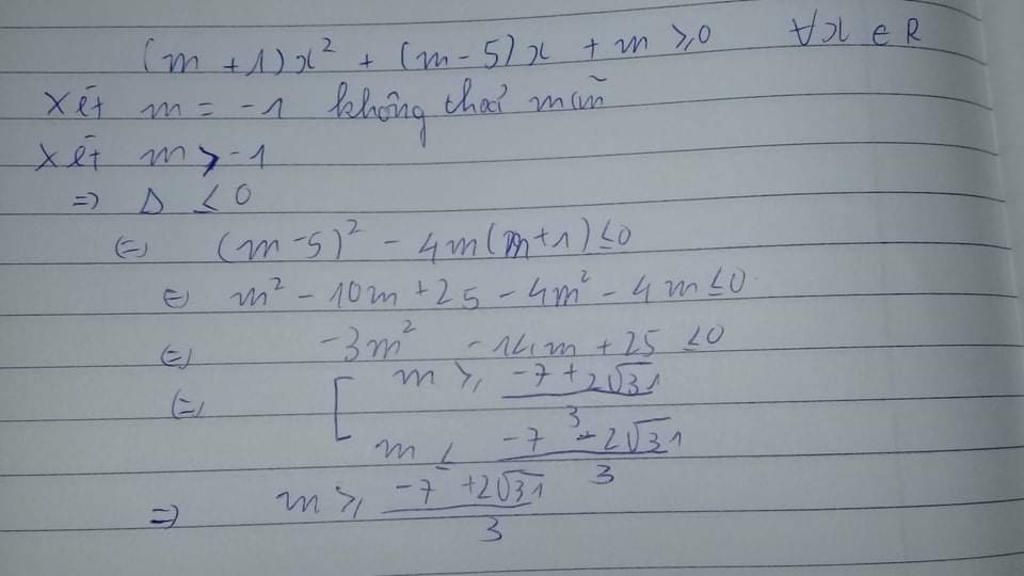 (m + 1)x² + (m - 5)x + m ≥ 0 ∀x ∈ R
Xét m = -1 không thoả mãn
Xét m > -1
=> Δ ≤ 0
(=) (m - 5)² - 4m(m + 1) ≤ 0
(=) m² - 10m + 25 - 4m² - 4m ≤ 0
(=) -3m² - 14m + 25 ≤ 0
(=) [ m ≥ (-7 + 2√31)/3
m ≤ (-7 - 2√31)/3
=> m ≥ (-7 + 2√31)/3